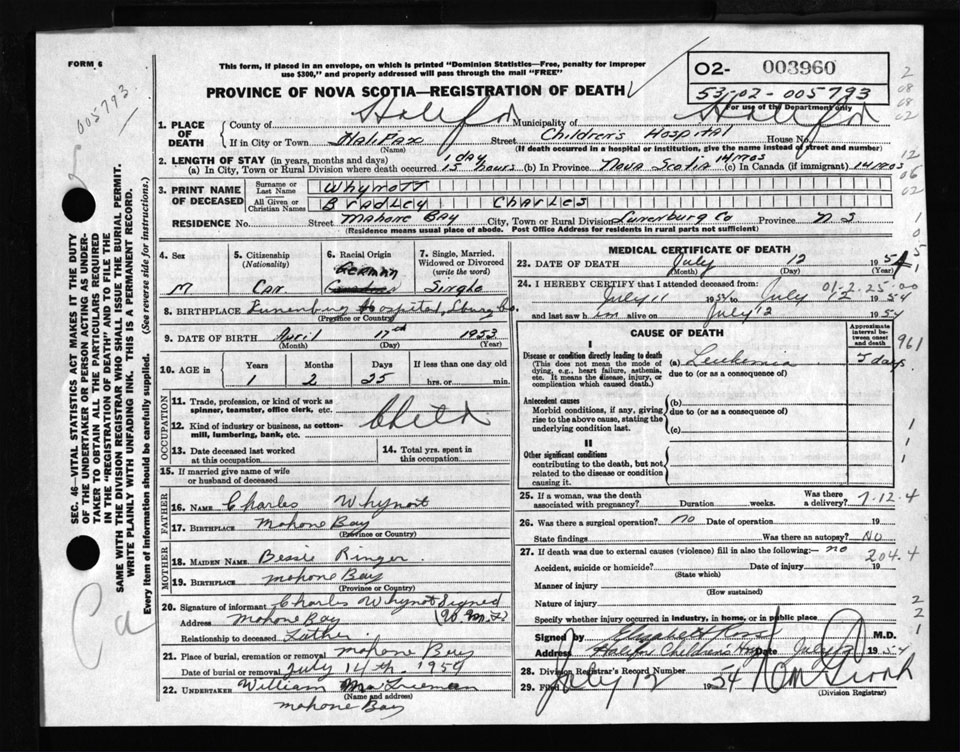 FORM 6
005793
This form, if placed in an envelope, on which is printed "Dominion Statistics—Free, penalty for improper
use $300," and properly addressed will pass through the mail "FREE"
PROVINCE OF NOVA SCOTIA—REGISTRATION OF DEATH
02- 003960
53-02-005793
For use of the Department only
1. PLACE OF DEATH
County of Halifax Municipality of Halifax
If in City or Town Halifax Street Children's Hospital House No.
(Name) (If death occurred in a hospital or institution, give the name instead of street and number)
2. LENGTH OF STAY (in years, months and days) 1 day 14 mos
(a) In City, Town or Rural Division where death occurred 15 hours (b) In Province Nova Scotia (c) In Canada (if immigrant) 14 mos
3. PRINT NAME OF DECEASED
Surname or Last Name Whynott
All Given or Christian Names Bradley Charles
RESIDENCE No. Street Mahone Bay City, Town or Rural Division Lunenburg Co Province N.S.
(Residence means usual place of abode. Post Office Address for residents in rural parts not sufficient)
4. Sex M
5. Citizenship (Nationality) Can
6. Racial Origin German
7. Single, Married, Widowed or Divorced (write the word) Single
8. BIRTHPLACE Lunenburg Hospital, Lburg Co.
(Province or Country)
9. DATE OF BIRTH April 17th 1953
(Month) (Day) (Year)
10. AGE in Years Months Days If less than one day old
1 2 25 hrs. or min.
OCCUPATION
11. Trade, profession, or kind of work as spinner, teamster, office clerk, etc.
12. Kind of industry or business, as cotton-mill, lumbering, bank, etc.
Child
13. Date deceased last worked at this occupation
14. Total yrs. spent in this occupation
15. If married give name of wife or husband of deceased
FATHER
16. NAME Charles Whynot
17. BIRTHPLACE Mahone Bay
(Province or Country)
MOTHER
18. MAIDEN NAME Bessie Ringer
19. BIRTHPLACE Mahone Bay
(Province or Country)
20. Signature of informant Charles Whynot Signed
Address Mahone Bay
Relationship to deceased Father
21. Place of burial, cremation or removal Mahone Bay
Date of burial or removal July 14th 1954
22. UNDERTAKER William
(Name and address)
Mahone Bay
MEDICAL CERTIFICATE OF DEATH
23. DATE OF DEATH July 12 1954
(Month) (Day) (Year)
24. I HEREBY CERTIFY that I attended deceased from:
01-2-25-00
July 11 1954 to July 12 1954
and last saw him alive on July 12 1954
CAUSE OF DEATH
Approximate interval between onset and death
961
I
Disease or condition directly leading to death (a) Leukemia 5 days
(This does not mean the mode of dying, e.g., heart failure, asthenia, etc. It means the disease, injury, or complication which caused death.)
due to (or as a consequence of)
Antecedent causes
Morbid conditions, if any, giving rise to the above cause, stating the underlying condition last.
(b)
due to (or as a consequence of)
(c)
II
Other significant conditions
contributing to the death, but not related to the disease or condition causing it
25. If a woman, was the death associated with pregnancy? Duration weeks. Was there a delivery? 7.12.4
26. Was there a surgical operation? no Date of operation 19
State findings Was there an autopsy? No
27. If death was due to external causes (violence) fill in also the following:— no
204.4
Accident, suicide or homicide? Date of injury 19
(State which)
Manner of injury
(How sustained)
Nature of injury
Specify whether injury occurred in industry, in home, or in public place
Signed by Elizabeth Ross M.D.
Address Halifax Children's Hosp Date July 12 1954
28. Division Registrar's Record Number
29. Filed July 12 1954
(Division Registrar)
SEC. 46—VITAL STATISTICS ACT MAKES IT THE DUTY
OF THE UNDERTAKER OR PERSON ACTING AS UNDER-
TAKER TO OBTAIN ALL THE PARTICULARS REQUIRED
IN THE "REGISTRATION OF DEATH" AND TO FILE THE
SAME WITH THE DIVISION REGISTRAR WHO SHALL ISSUE THE BURIAL PERMIT.
WRITE PLAINLY WITH UNFADING INK. THIS IS A PERMANENT RECORD.
Every item of information should be carefully supplied. (See reverse side for instructions.)
Ca